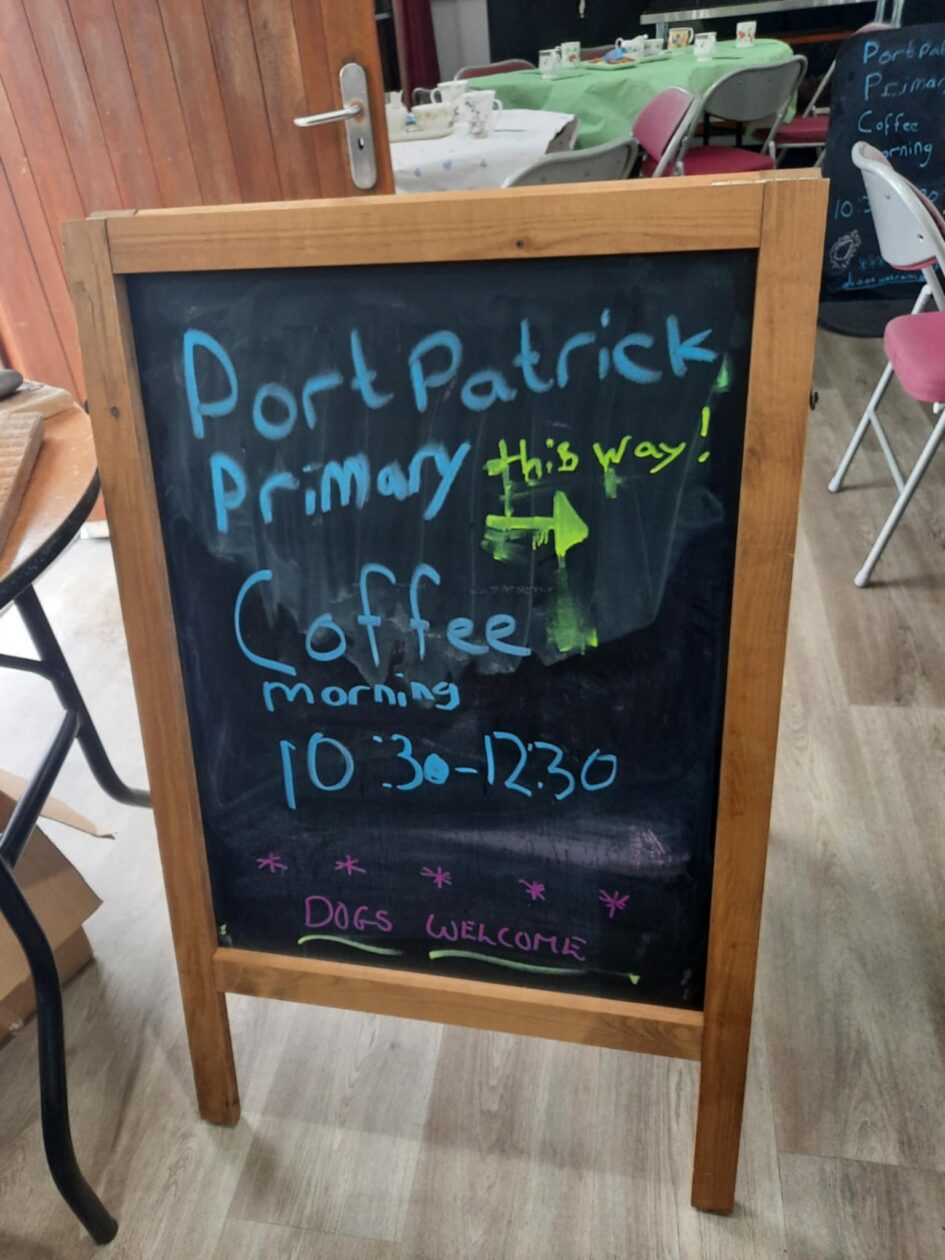 PortPatrick
Primary this way!
Coffee
morning
10:30-12:30
DOGS WELCOME
Primary
Coffee